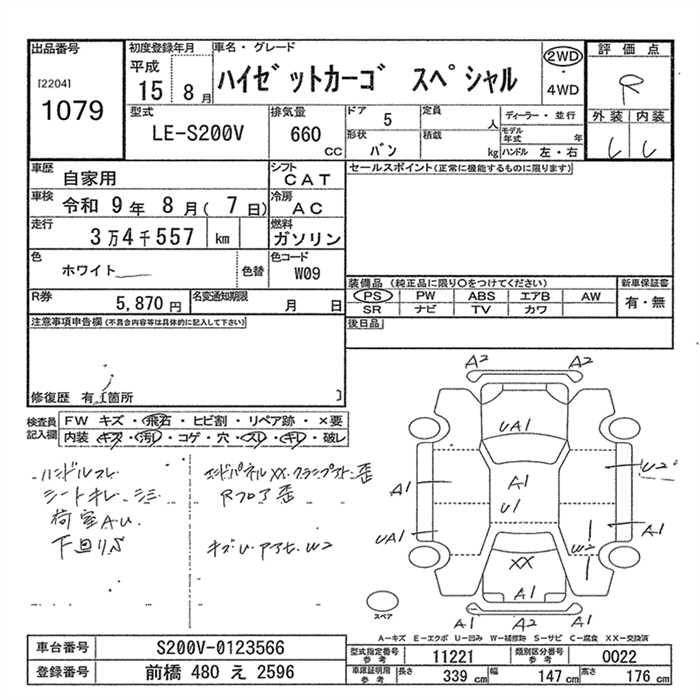 出品番号
[2204]
1079
初度登録年月
平成
15 8月
車名・グレード
ハイゼットカーゴ スペシャル
2WD
4WD
評価点
R
外装 内装
型式
LE-S200V
排気量
660
CC
ドア 5
定員 人
形状 バン
積載 kg
ディーラー・並行
モデル年式 年
ハンドル 左・右
車歴 自家用
シフト CAT
車検 令和 9年 8月( 7日)
冷房 AC
走行 3万4千557 km
燃料 ガソリン
色 ホワイト 色替
色コード W09
R券 5,870円
名変通知期限 月 日
セールスポイント(正常に機能するものに限ります)
装備品 (純正品に限り○をつけてください)
新車保証書
PS PW ABS エアB AW
有・無
SR ナビ TV カワ
後日品
注意事項申告欄(不具合内容等は具体的に記入して下さい)
修復歴 有 箇所
検査員記入欄
FW キズ・飛石・ヒビ割・リペア跡・×要
内装 キズ・汚レ・コゲ・穴・スレ・キレ・破レ
ハンドルスレ
シートキレ シミ
荷室AU
下回りS
エンドパネルXX
Rフロア歪
キズU
W2
A2 A2
UA1
A1
A1
U1
U2
UA1
A1
W2
XX
A1
A1 A2 A1
スペア
A-キズ E-エクボ U-凹み W-補修跡 S-サビ C-腐食 XX-交換済
車台番号 S200V-0123566
登録番号 前橋 480 え 2596
型式指定番号 参考 11221
類別区分番号 参考 0022
車庫証明用 参考 長さ 339 cm 幅 147 cm 高さ 176 cm